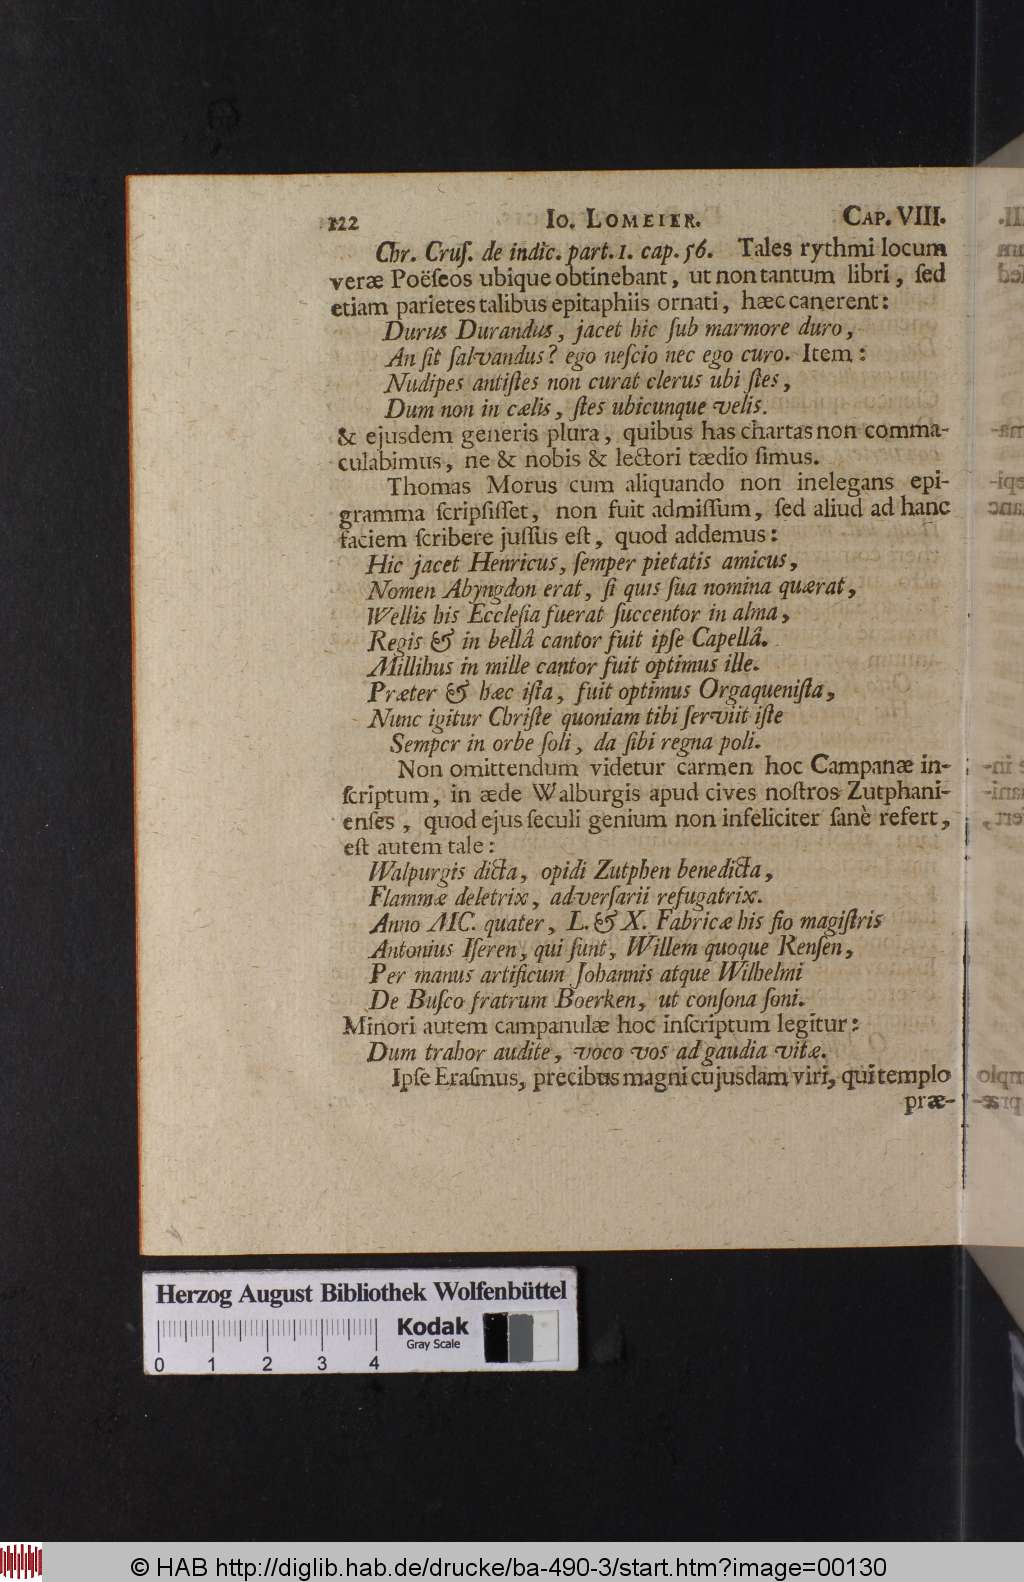 122 IO. LOMEIER. CAP. VIII.
Chr. Cruſ. de indic. part. 1. cap. 56. Tales rythmi locum
veræ Poëſeos ubique obtinebant, ut non tantum libri, ſed
etiam parietes talibus epitaphiis ornati, hæc canerent:
Durus Durandus, jacet hic ſub marmore duro,
An ſit ſalvandus? ego neſcio nec ego curo. Item:
Nudipes antiſtes non curat clerus ubi ſtes,
Dum non in cælis, ſtes ubicunque velis.
& ejusdem generis plura, quibus has chartas non comma-
culabimus, ne & nobis & lectori tædio ſimus.
Thomas Morus cum aliquando non inelegans epi-
gramma ſcripſiſſet, non fuit admiſſum, ſed aliud ad hanc
faciem ſcribere juſſus eſt, quod addemus:
Hic jacet Henricus, ſemper pietatis amicus,
Nomen Abyngdon erat, ſi quis ſua nomina quærat,
Wellis his Eccleſia fuerat ſuccentor in alma,
Regis & in bellâ cantor fuit ipſe Capellâ.
Millibus in mille cantor fuit optimus ille.
Præter & hæc iſta, fuit optimus Orgaqueniſta,
Nunc igitur Chriſte quoniam tibi ſerviit iſte
Semper in orbe ſoli, da ſibi regna poli.
Non omittendum videtur carmen hoc Campanæ in-
ſcriptum, in æde Walburgis apud cives noſtros Zutphani-
enſes, quod ejus ſeculi genium non infeliciter ſanè refert,
eſt autem tale:
Walpurgis dicta, opidi Zutphen benedicta,
Flammæ deletrix, adverſarii refugatrix.
Anno MC. quater, L. & X. Fabricæ his fio magiſtris
Antonius Iſeren, qui ſunt, Willem quoque Renſen,
Per manus artificum Johannis atque Wilhelmi
De Buſco fratrum Boerken, ut conſona ſoni.
Minori autem campanulæ hoc inſcriptum legitur:
Dum trahor audite, voco vos ad gaudia vitæ.
Ipſe Eraſmus, precibus magni cujusdam viri, qui templo
præ-
Herzog August Bibliothek Wolfenbüttel
Kodak
Gray Scale
0 1 2 3 4
© HAB http://diglib.hab.de/drucke/ba-490-3/start.htm?image=00130